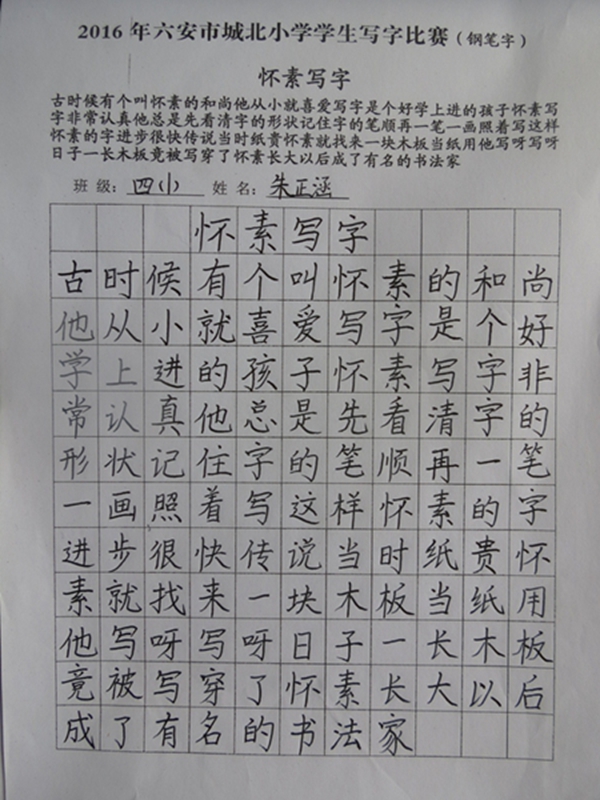 2016年六安市城北小学学生写字比赛（钢笔字）
怀素写字
古时候有个叫怀素的和尚他从小就喜爱写字是个好学上进的孩子怀素写
字非常认真他总是先看清字的形状记住字的笔顺再一笔一画照着写这样
怀素的字进步很快传说当时纸贵怀素就找来一块木板当纸用他写呀写呀
日子一长木板竟被写穿了怀素长大以后成了有名的书法家
班级：四(1) 姓名：朱正涵
怀素写字
古时候有个叫怀素的和尚
他从小就喜爱写字是个好
学上进的孩子怀素写字非
常认真他总是先看清字的
形状记住字的笔顺再一笔
一画照着写这样怀素的字
进步很快传说当时纸贵怀
素就找来一块木板当纸用
他写呀写呀日子一长木板
竟被写穿了怀素长大以后
成了有名的书法家